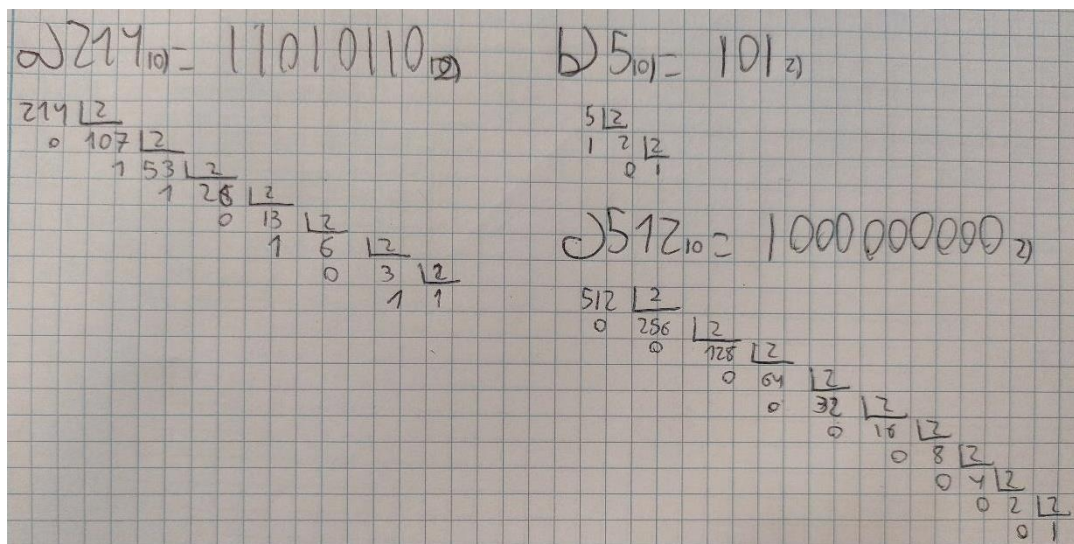 a) 214₁₀₎ = 11010110₂₎
214 | 2
0 107 | 2
1 53 | 2
1 26 | 2
0 13 | 2
1 6 | 2
0 3 | 2
1 1
b) 5₁₀₎ = 101₂₎
5 | 2
1 2 | 2
0 1
c) 512₁₀ = 1000000000₂₎
512 | 2
0 256 | 2
0 128 | 2
0 64 | 2
0 32 | 2
0 16 | 2
0 8 | 2
0 4 | 2
0 2 | 2
0 1